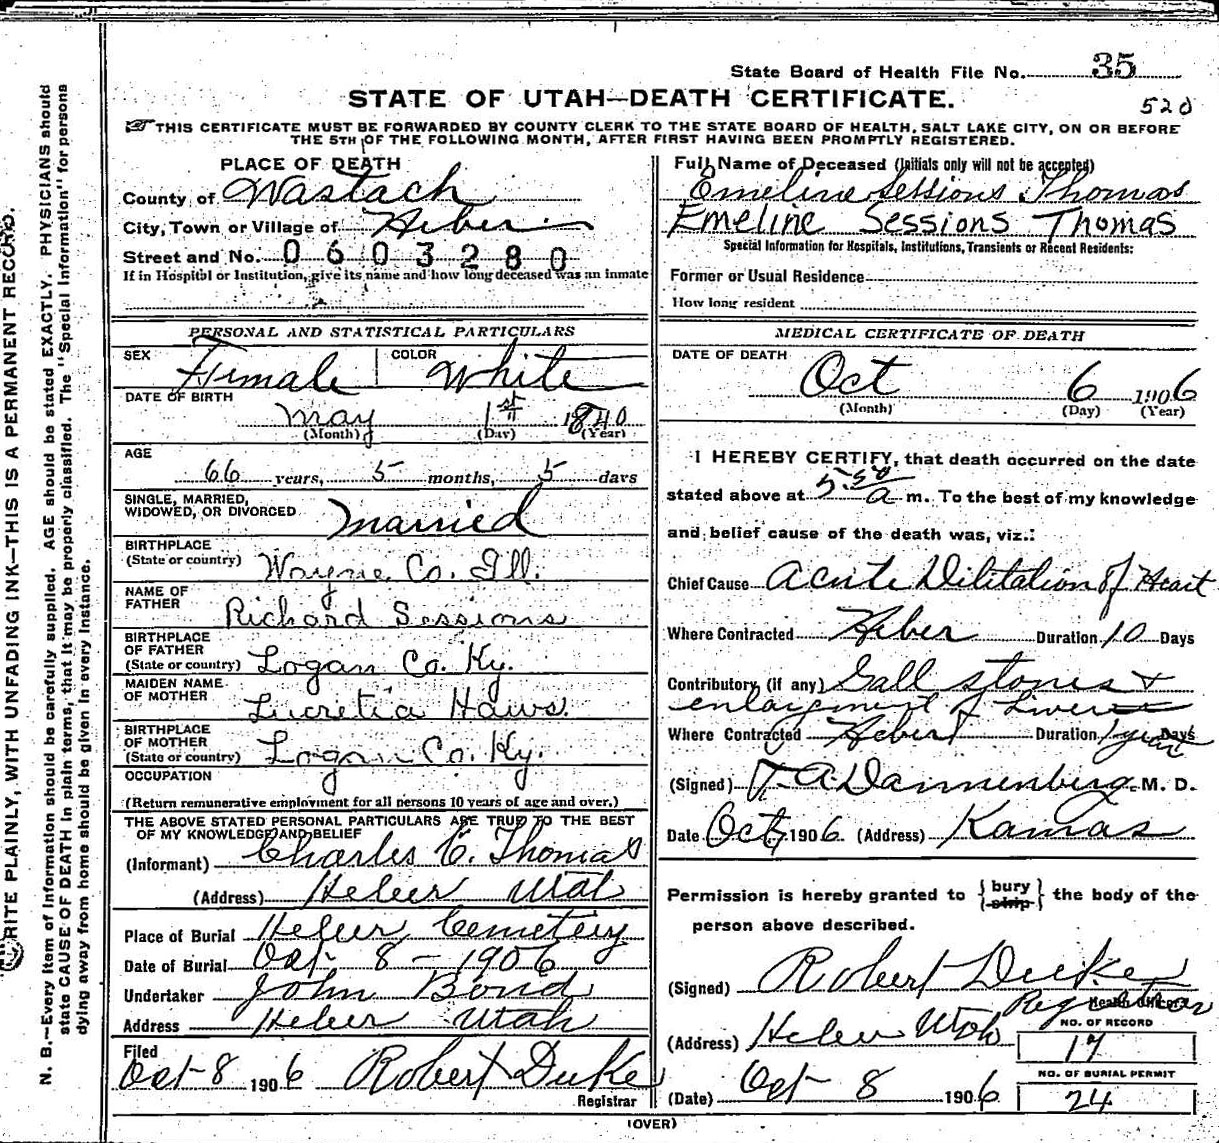 State Board of Health File No. 35
520
STATE OF UTAH—DEATH CERTIFICATE.
THIS CERTIFICATE MUST BE FORWARDED BY COUNTY CLERK TO THE STATE BOARD OF HEALTH, SALT LAKE CITY, ON OR BEFORE
THE 5TH OF THE FOLLOWING MONTH, AFTER FIRST HAVING BEEN PROMPTLY REGISTERED.
PLACE OF DEATH
County of Wastach
City, Town or Village of Heber
Street and No. 0603280
If in Hospital or Institution, give its name and how long deceased was an inmate
PERSONAL AND STATISTICAL PARTICULARS
SEX Female COLOR White
DATE OF BIRTH
May 1st 1840
(Month) (Day) (Year)
AGE
66 years, 5 months, 5 days
SINGLE, MARRIED,
WIDOWED, OR DIVORCED Married
BIRTHPLACE
(State or country) Wayne Co. Ill.
NAME OF
FATHER Richard Sessions
BIRTHPLACE
OF FATHER
(State or country) Logan Co. Ky.
MAIDEN NAME
OF MOTHER Lucretia Haws.
BIRTHPLACE
OF MOTHER
(State or country) Logan Co. Ky.
OCCUPATION
(Return remunerative employment for all persons 10 years of age and over.)
THE ABOVE STATED PERSONAL PARTICULARS ARE TRUE TO THE BEST
OF MY KNOWLEDGE AND BELIEF
(Informant) Charles C. Thomas
(Address) Heber Utah
Place of Burial Heber Cemetery
Date of Burial Oct 8 - 1906
Undertaker John Bond
Address Heber Utah
Filed
Oct 8 1906 Robert Duke
Registrar
Full Name of Deceased (Initials only will not be accepted)
Emeline Sessions Thomas
Emeline Sessions Thomas
Special Information for Hospitals, Institutions, Transients or Recent Residents:
Former or Usual Residence
How long resident
MEDICAL CERTIFICATE OF DEATH
DATE OF DEATH
Oct 6 1906
(Month) (Day) (Year)
I HEREBY CERTIFY, that death occurred on the date
stated above at 5-50 a m. To the best of my knowledge
and belief cause of the death was, viz.:
Chief Cause Acute Dilitation of Heart
Where Contracted Heber Duration 10 Days
Contributory (if any) Gall stones +
enlargment of Liver
Where Contracted Heber Duration 1 year Days
(Signed) T. A. Dannenberg M. D.
Date Oct 7 1906 (Address) Kamas
Permission is hereby granted to { bury ship } the body of the
person above described.
(Signed) Robert Duke
Registrar Health Officer
(Address) Heber Utah
NO. OF RECORD
17
NO. OF BURIAL PERMIT
24
(Date) Oct 8 1906
(OVER)
WRITE PLAINLY, WITH UNFADING INK—THIS IS A PERMANENT RECORD.
N. B.—Every item of Information should be carefully supplied. AGE should be stated EXACTLY. PHYSICIANS should
state CAUSE OF DEATH in plain terms, that it may be properly classified. The "Special Information" for persons
dying away from home should be given in every instance.